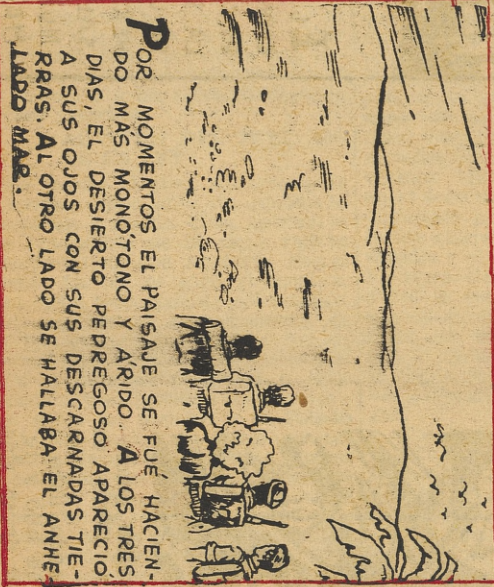 POR MOMENTOS EL PAISAJE SE FUÉ HACIEN-
DO MÁS MONÓTONO Y ÁRIDO. A LOS TRES
DIAS, EL DESIERTO PEDREGOSO APARECIO
A SUS OJOS CON SUS DESCARNADAS TIE-
RRAS. AL OTRO LADO SE HALLABA EL ANHE-
LADO MAR.